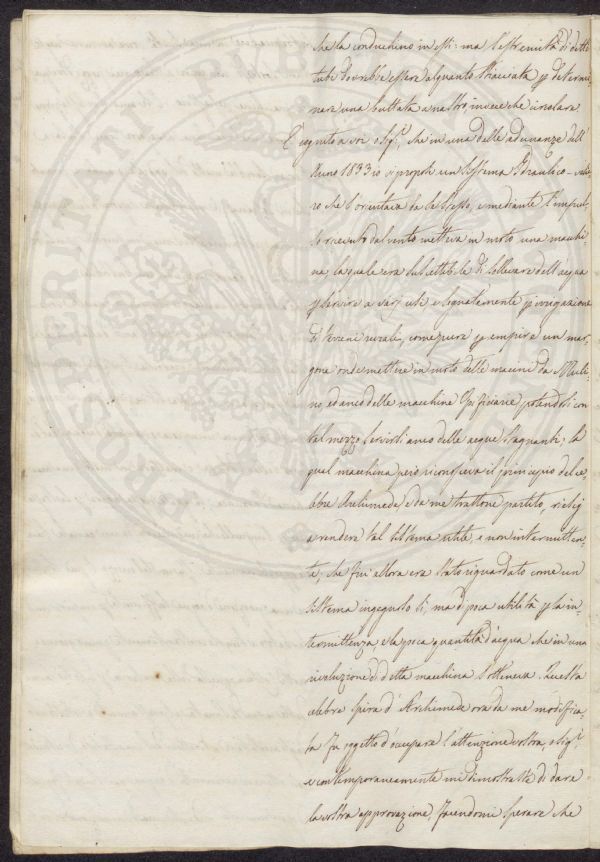 che la conduchino in essi: ma l'estremità di detti
tubi dovrebb'essere alquanto stiacciata p determi-
nare una buttata a nastro, invece che circolare.
E' cognito a voi o Sig.ri, che in una delle adunanze dell'
Anno 1833 io vi proposi un Sistema Idraulico-
ro che s'orientava da se stesso, e mediante l'impul-
so ricevuto dal vento metteva in moto una macchi-
na, la quale era suscettibile di sollevare dell'acqua
p servire a varj usi e segnatamente p irrigazione
di terreni rurali, come pure p empire un mar-
gone onde mettere in moto delle macini da Muli-
no, ed anco delle macchine Opificiarie, potendosi con
tal mezzo servirsi anco delle acque stagnanti; la
qual macchina però riconosceva il principio del ce-
lebre Archimede e da me trattone partito, riescij
a rendere tal sistema utile, e non intermitten-
te, che fin' allora era stato riguardato come un
sistema ingegnoso sì, ma di poca utilità p la in-
termittenza, e la poca quantità d'acqua che in una
rivoluzione di detta macchina s'otteneva. Questa
celebre spira d'Archimede ora da me modifica-
ta fu oggetto d'occupare l'attenzione vostra, o Sig.ri
e contemporaneamente mi dimostraste di dare
la vostra approvazione, facendomi sperare che
PROSPERITATI PUBLICAE